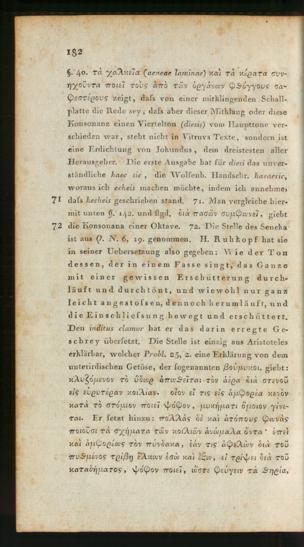 182
§. 40. τὰ χαλκεῖα (aeneae laminae) καὶ τὰ κέρατα συν-
ηχοῦντα ποιεῖ τοὺς ἀπὸ τῶν ὀργάνων φθόγγους σα-
φεστέρους zeigt, daſs von einer mitklingenden Schall-
platte die Rede sey, daſs aber dieser Mitklang oder diese
Konsonanz einen Viertelton (diesis) vom Hauptione ver-
schieden war, steht nicht in Vitruvs Texte, sondern ist
eine Erdichtung von Jokundus, dem dreistesten aller
Herausgeber. Die erste Ausgabe hat für diesi das unver-
ständliche haec sie, die Wolfenb. Handschr. haecaesie,
woraus ich echeis machen möchte, indem ich annehme,
71 daſs hecheis geschrieben stand. 71. Man vergleiche hier-
mit unten §. 142. und flgd. διὰ πασῶν συμφωνεῖ, giebt
72 die Konsonanz einer Oktave. 72. Die Stelle des Seneka
ist aus Q. N. 6, 19. genommen. H. Ruhkopf hat sie
in seiner Uebersetzung also gegeben: Wie der Ton
dessen, der in einem Fasse singt, das Ganze
mit einer gewissen Erschütterung durch-
läuft und durchtönt, und wiewohl nur ganz
leicht angestoſsen, dennoch herumläuft, und
die Einschlieſsung bewegt und erschüttert.
Den inditus clamor hat er das darin erregte Ge-
schrey übersetzt. Die Stelle ist einzig aus Aristoteles
erklärbar, welcher Probl. 25, 2. eine Erklärung von dem
unterirdischen Getöse, der sogenannten βούμυκοι, giebt:
κλυζόμενον τὸ ὕδωρ ἀπωθεῖται τὸν ἀέρα διὰ στενοῦ
εἰς εὐρυτέραν κοιλίαν. οἷον εἴ τις εἰς ἀμφορέα κενὸν
κατὰ τὸ στόμιον ποιεῖ ψόφον, μυκήματι ὅμοιον γίνε-
ται. Er setzt hinzu: πολλὰς δὲ καὶ ἀτόπους φωνὰς
ποιοῦσι τὰ σχήματα τῶν κοιλιῶν ἀνώμαλα ὄντα· ἐπεὶ
καὶ ἀμφορέως τὸν πύνδακα, ἐάν τις ἀφελὼν διὰ τοῦ
πυθμένος τρίβῃ ἕλκων ἔσω καὶ ἔξω, εἰ τρίψει διὰ τοῦ
καταδήματος, ψόφον ποιεῖ, ὥστε φεύγειν τὰ θηρία,